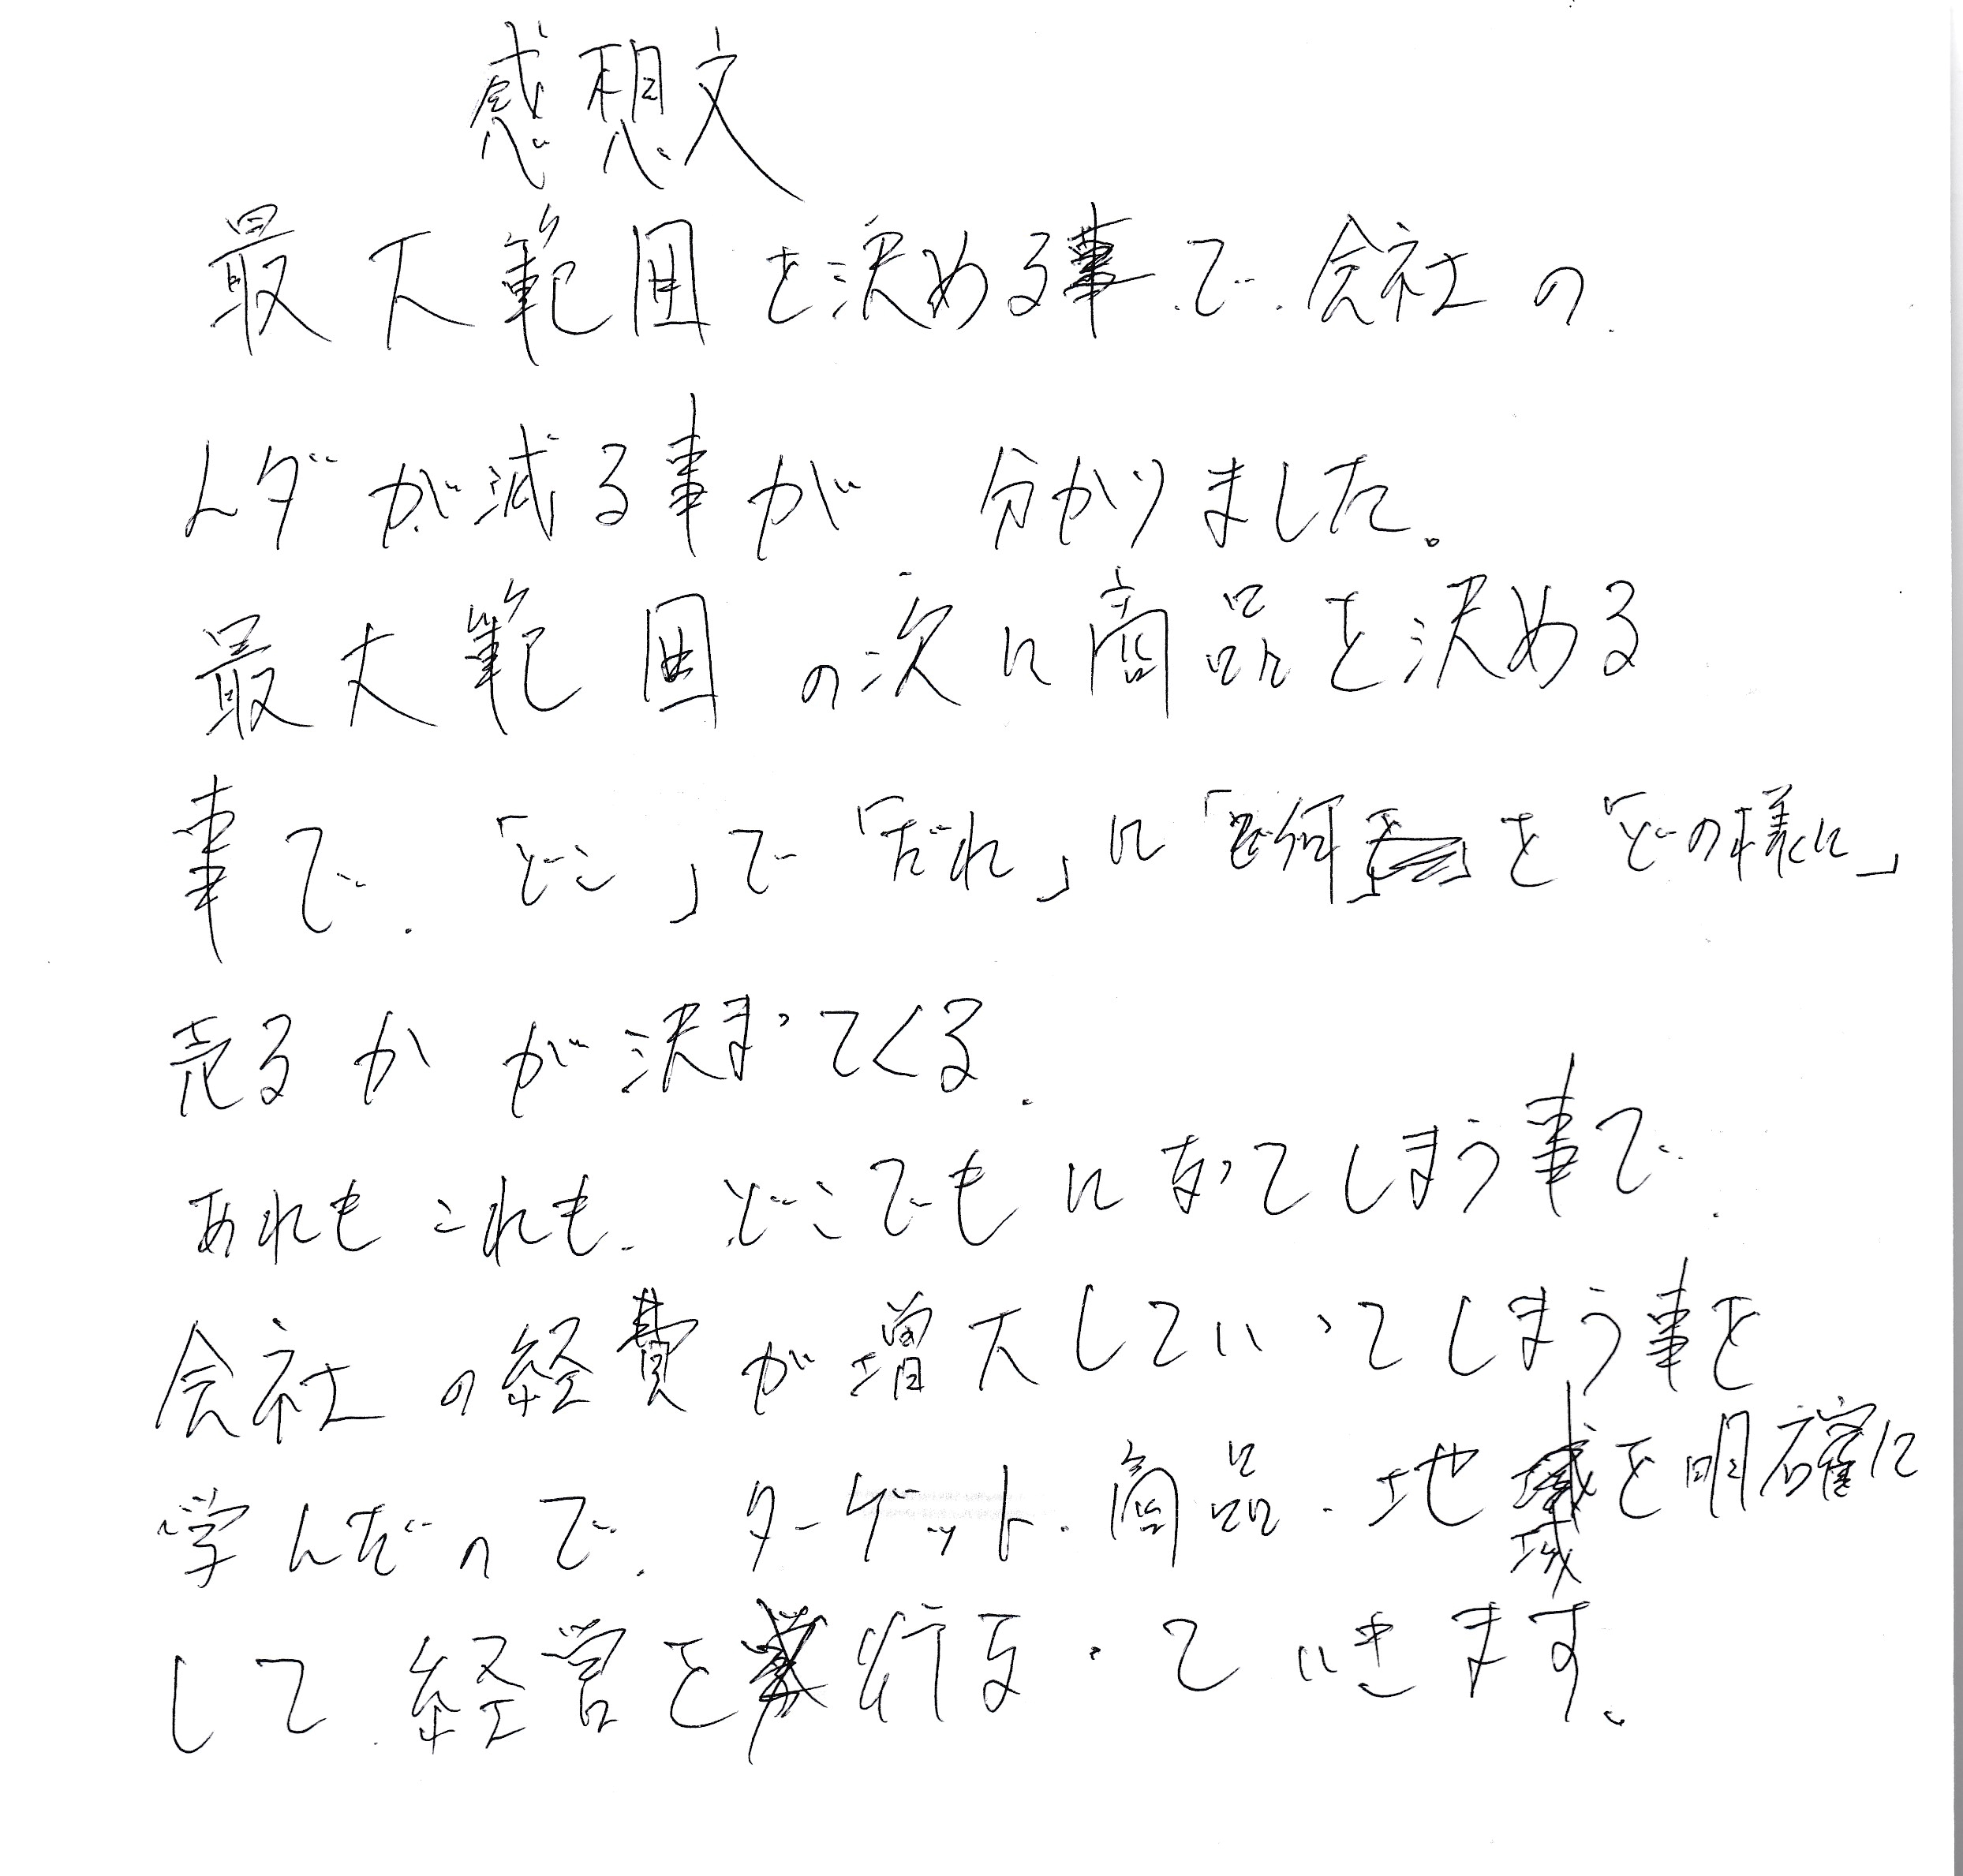 感想文
最大範囲を決める事で、会社の
ムダが減る事が分かりました。
最大範囲の次に商品を決める
事で、「どこ」で「だれ」に「何」を「どの様に」
売るかが決まってくる。
あれもこれも、どこでもになってしまう事で、
会社の経費が増大していってしまう事を
学んだので、ターゲット、商品、地域を明確に
して、経営を行なっていきます。